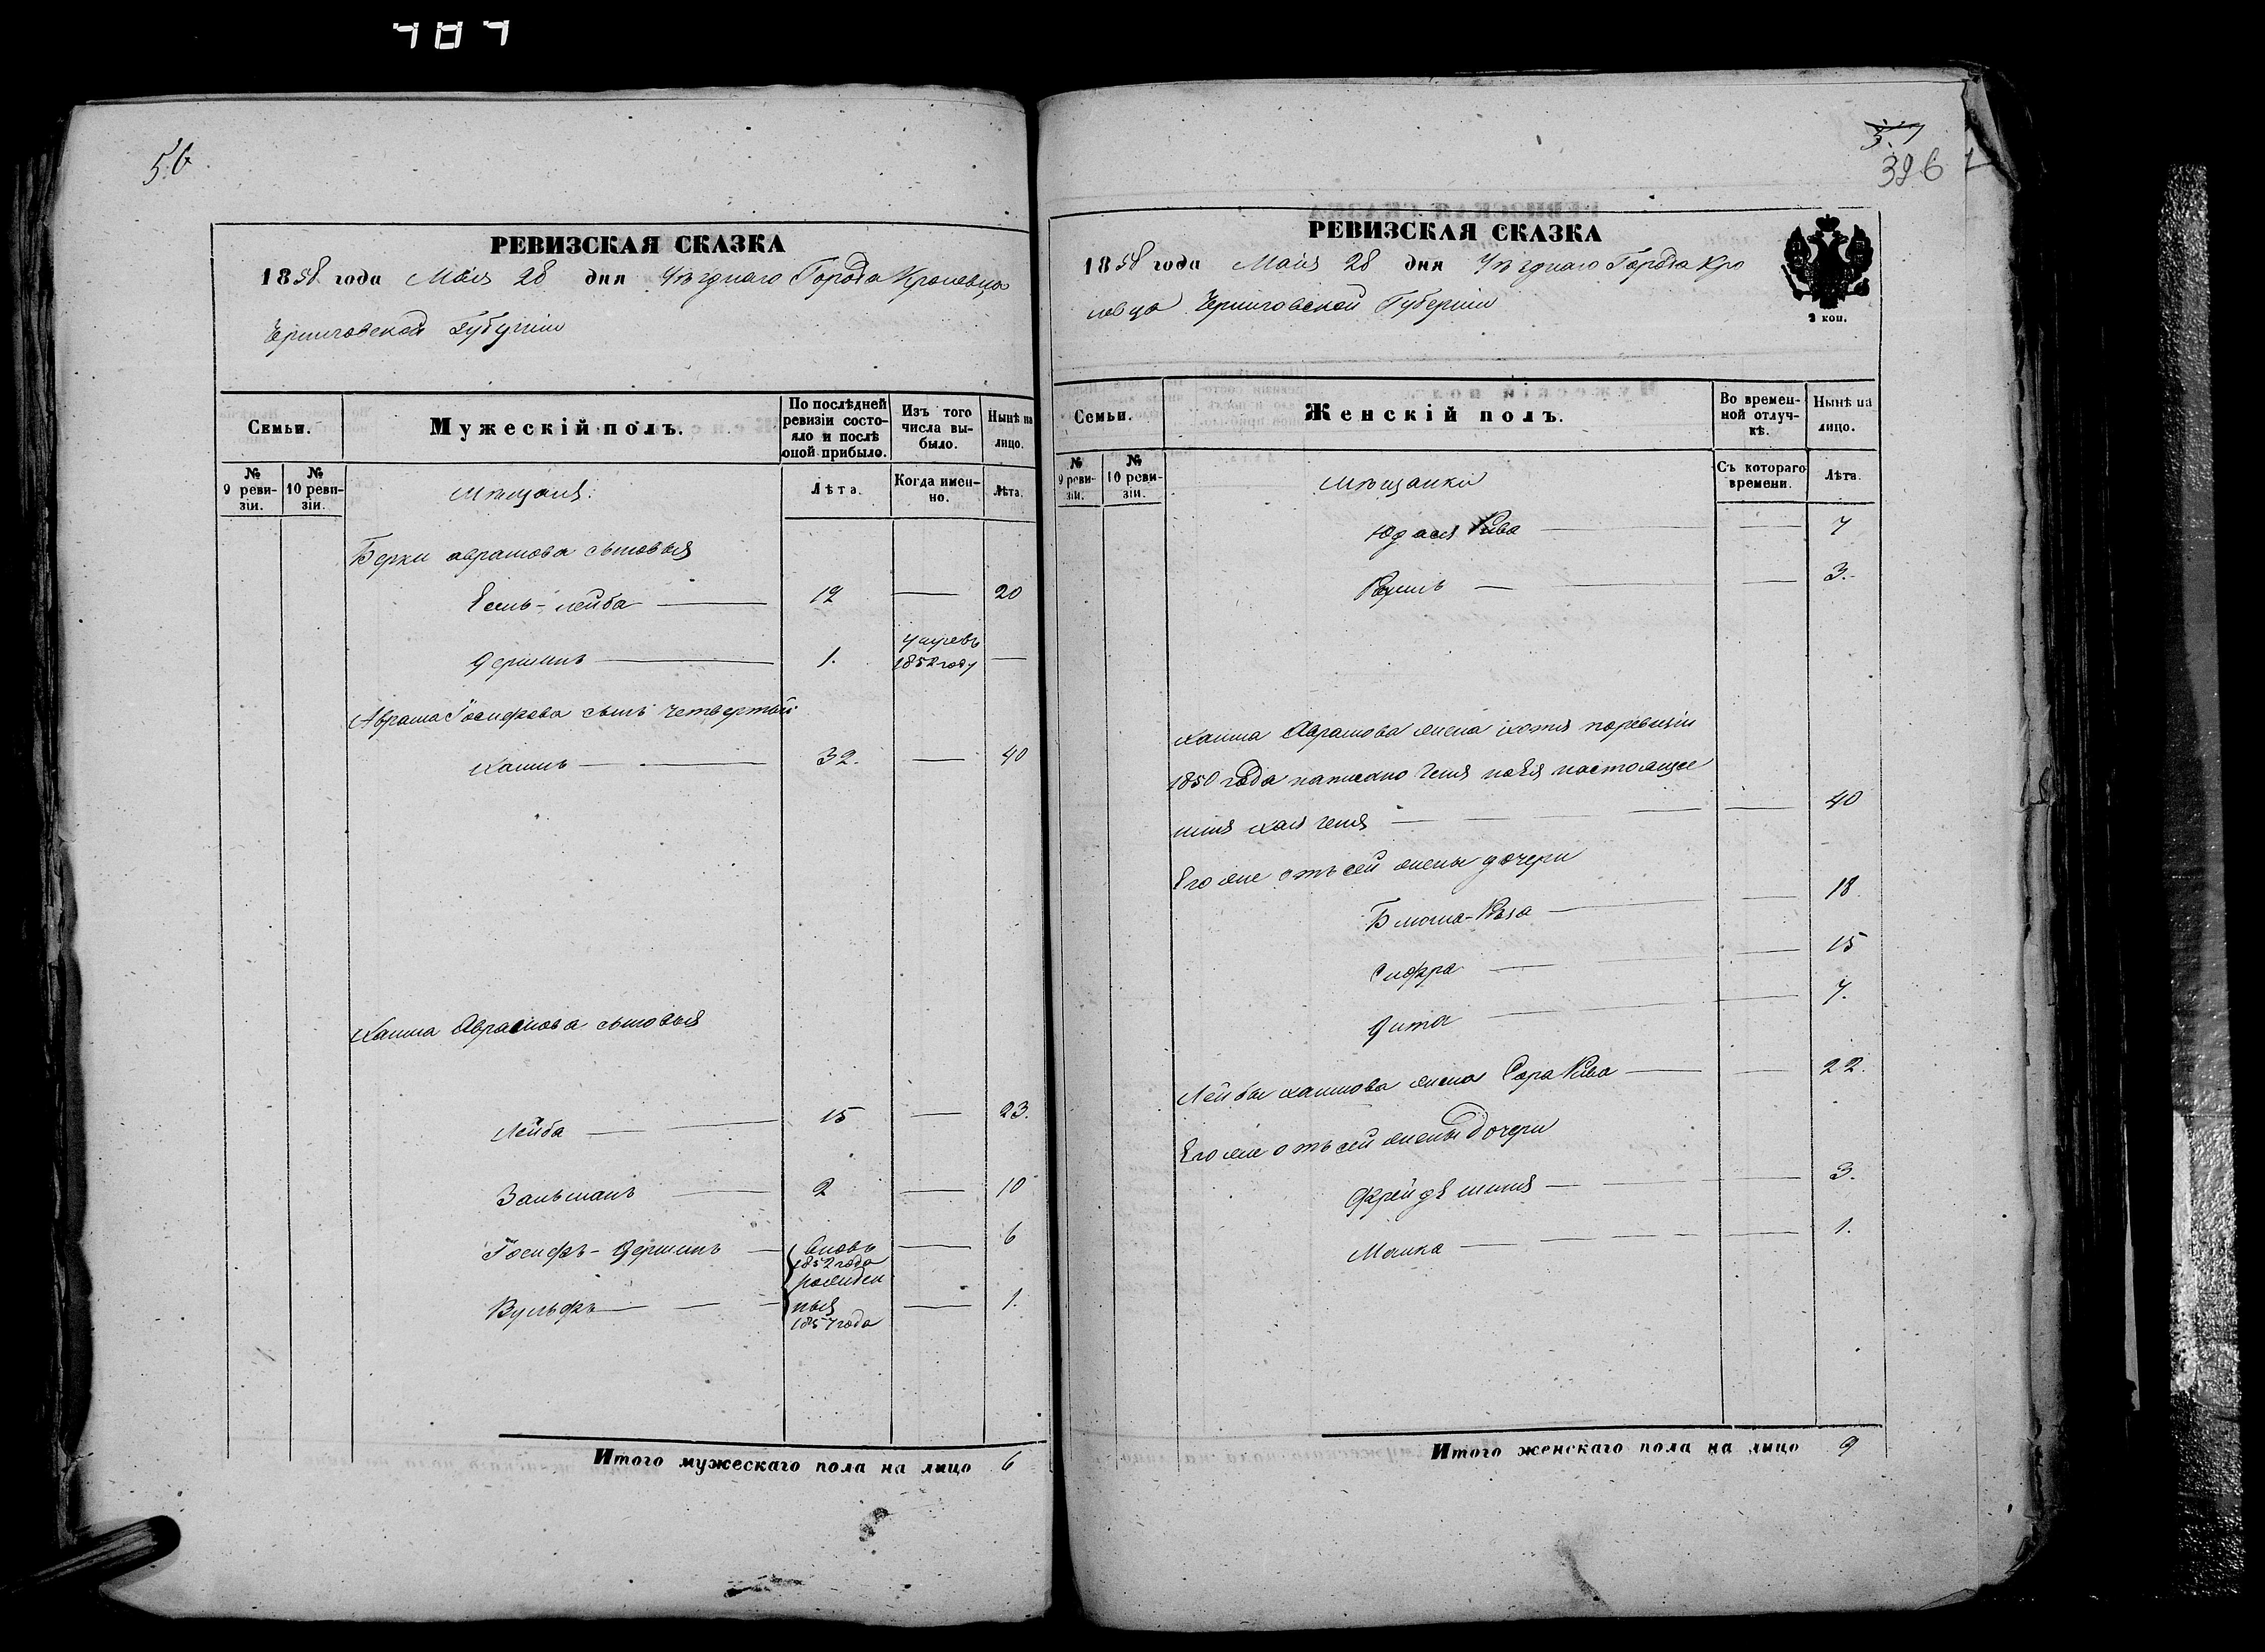 404
56
РЕВИЗСКАЯ СКАЗКА
1858 года Мая 28 дня Уѣзднаго Города Кролевца
Черниговской Губерніи
Семьи.
Мужескій полъ.
По послѣдней ревизіи состояло и послѣ оной прибыло.
Изъ того числа выбыло.
Нынѣ на лицо.
№ 9 ревизіи.
№ 10 ревизіи.
Мѣщаня.
Лѣта.
Когда именно.
Лѣта.
Берки аврамова сыновья
Есиль-лейба — 12 — 20
Гершинъ — 1. умревъ 1852 году —
Аврама Іосифова сынъ четвертый
Хаимъ — 32. — 40
Хаима Аврамова сыновья
Лейба — 15 — 23.
Зальманъ — 2 — 10
Іосифъ-Гершинъ — вновь 1852 года — 6
Вульфъ — рожденныя 1857 года — 1.
Итого мужескаго пола на лицо 6
57
396
РЕВИЗСКАЯ СКАЗКА
1858 года Мая 28 дня Уѣзднаго Города Кро
левца Черниговской Губерніи
2 коп.
Семьи.
Женскій полъ.
Во временной отлучкѣ.
Нынѣ на лицо.
№ 9 ревизіи.
№ 10 ревизіи.
Мѣщанки
Съ котораго времени.
Лѣта.
Рива — 7
— 3.
Хаима Аврамова жена хотя поревизіи
1850 года написано
— 40
Его же отъ сей жены дочери
Блюма- — 18
Сифра — 15
Гита — 7.
Лейбы хаимова жена Сора Рива — 22.
Его же отъ сей жены дочери
Фрейда — 3.
Малка — 1.
Итого женскаго пола на лицо 9